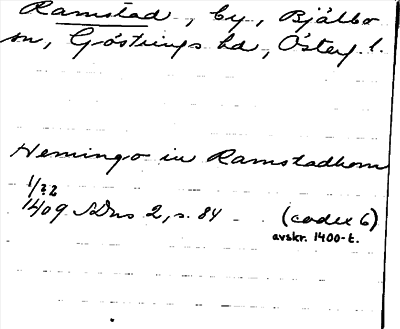 Ramstad, by, Bjälbo
sn, Göstrings hd, Österg. l.
Hemingo in Ramstadhom
1/22
1409 SDns 2, s. 84 (codex 6)
avskr. 1400-t.